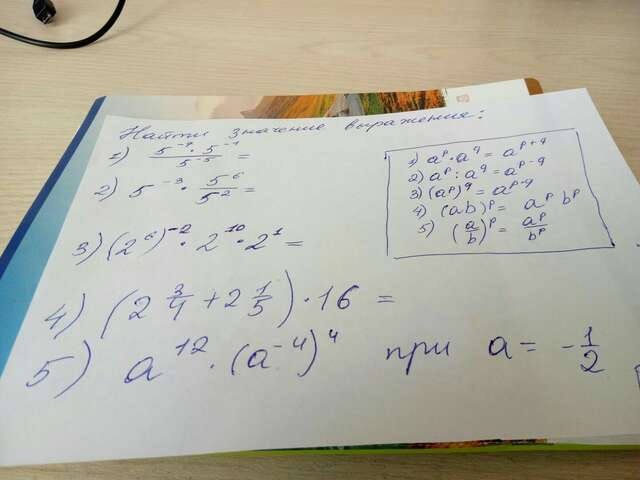 Найти значение выражения:
1) (5⁻⁷ · 5⁻¹)/5⁻⁵ =
2) 5⁻³ · 5⁶/5² =
3) (2⁶)⁻² · 2¹⁰ · 2¹ =
4) (2 3/4 + 2 1/5) · 16 =
5) a¹² · (a⁻⁴)⁴ при a = -1/2
1) aᵖ · a^q = a^(p+q)
2) aᵖ : a^q = a^(p-q)
3) (aᵖ)^q = a^(p·q)
4) (ab)ᵖ = aᵖ bᵖ
5) (a/b)ᵖ = aᵖ/bᵖ